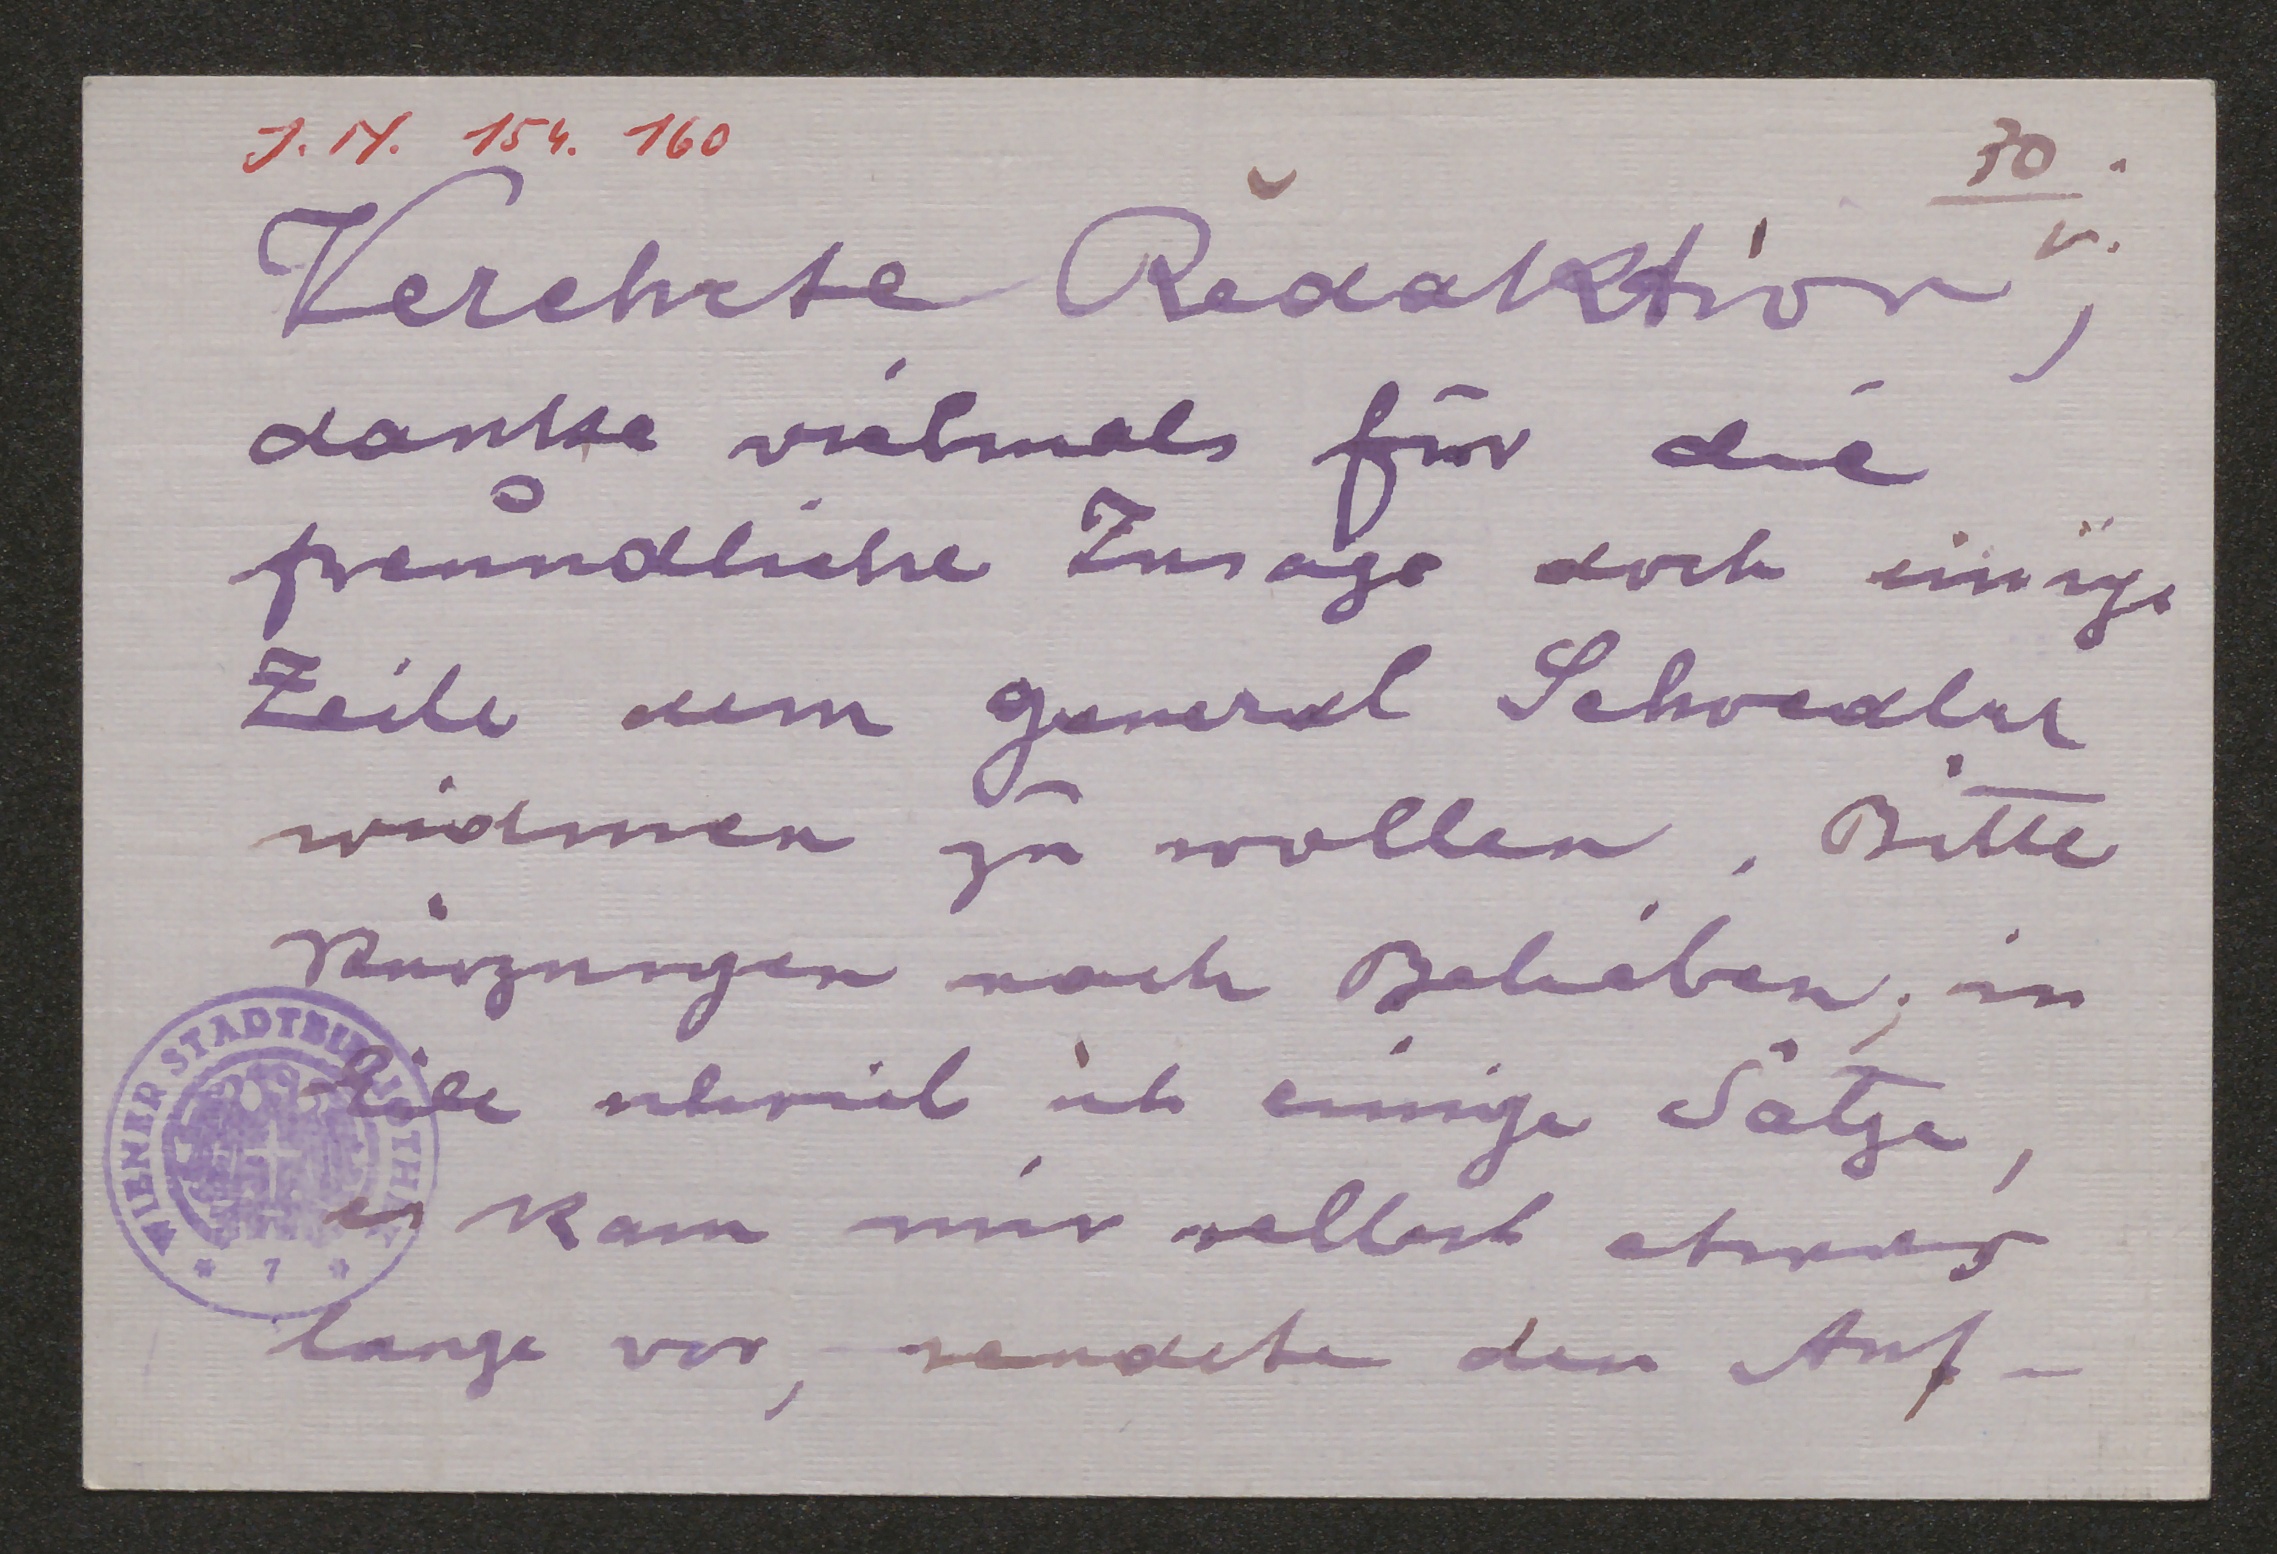 J. N. 154. 160
30.
V.
Verehrte Redaktion,
danke vielmals für die
freundliche Zusage doch einige
Zeile dem General Schoedler
widmen zu wollen. Bitte
Kürzungen nach Belieben, in
Eile schrieb ich einige Sätze,
es kam mir selbst etwas
lange vor, sendete den Auf-
WIENER STADTBIBLIOTHEK
* 7 *